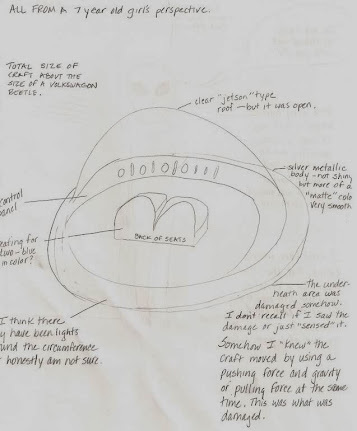 ALL FROM A 7 year old girl's perspective.
TOTAL SIZE OF
CRAFT ABOUT THE
SIZE OF A VOLKSWAGON
BEETLE.
clear "jetson" type
roof - but it was open.
silver metallic
body - not shiny
but more of a
"matte" colo
Very smooth
control
panel
eating for
two - blue
in color?
BACK OF SEATS
the under-
neath area was
damaged somehow.
I don't recall if I saw the
damage or just "sensed" it.
I think there
y have been lights
und the circumference
honestly am not sure.
Somehow I "knew" the
craft moved by using a
pushing force and gravity
or pulling force at the same
time. This was what was
damaged.